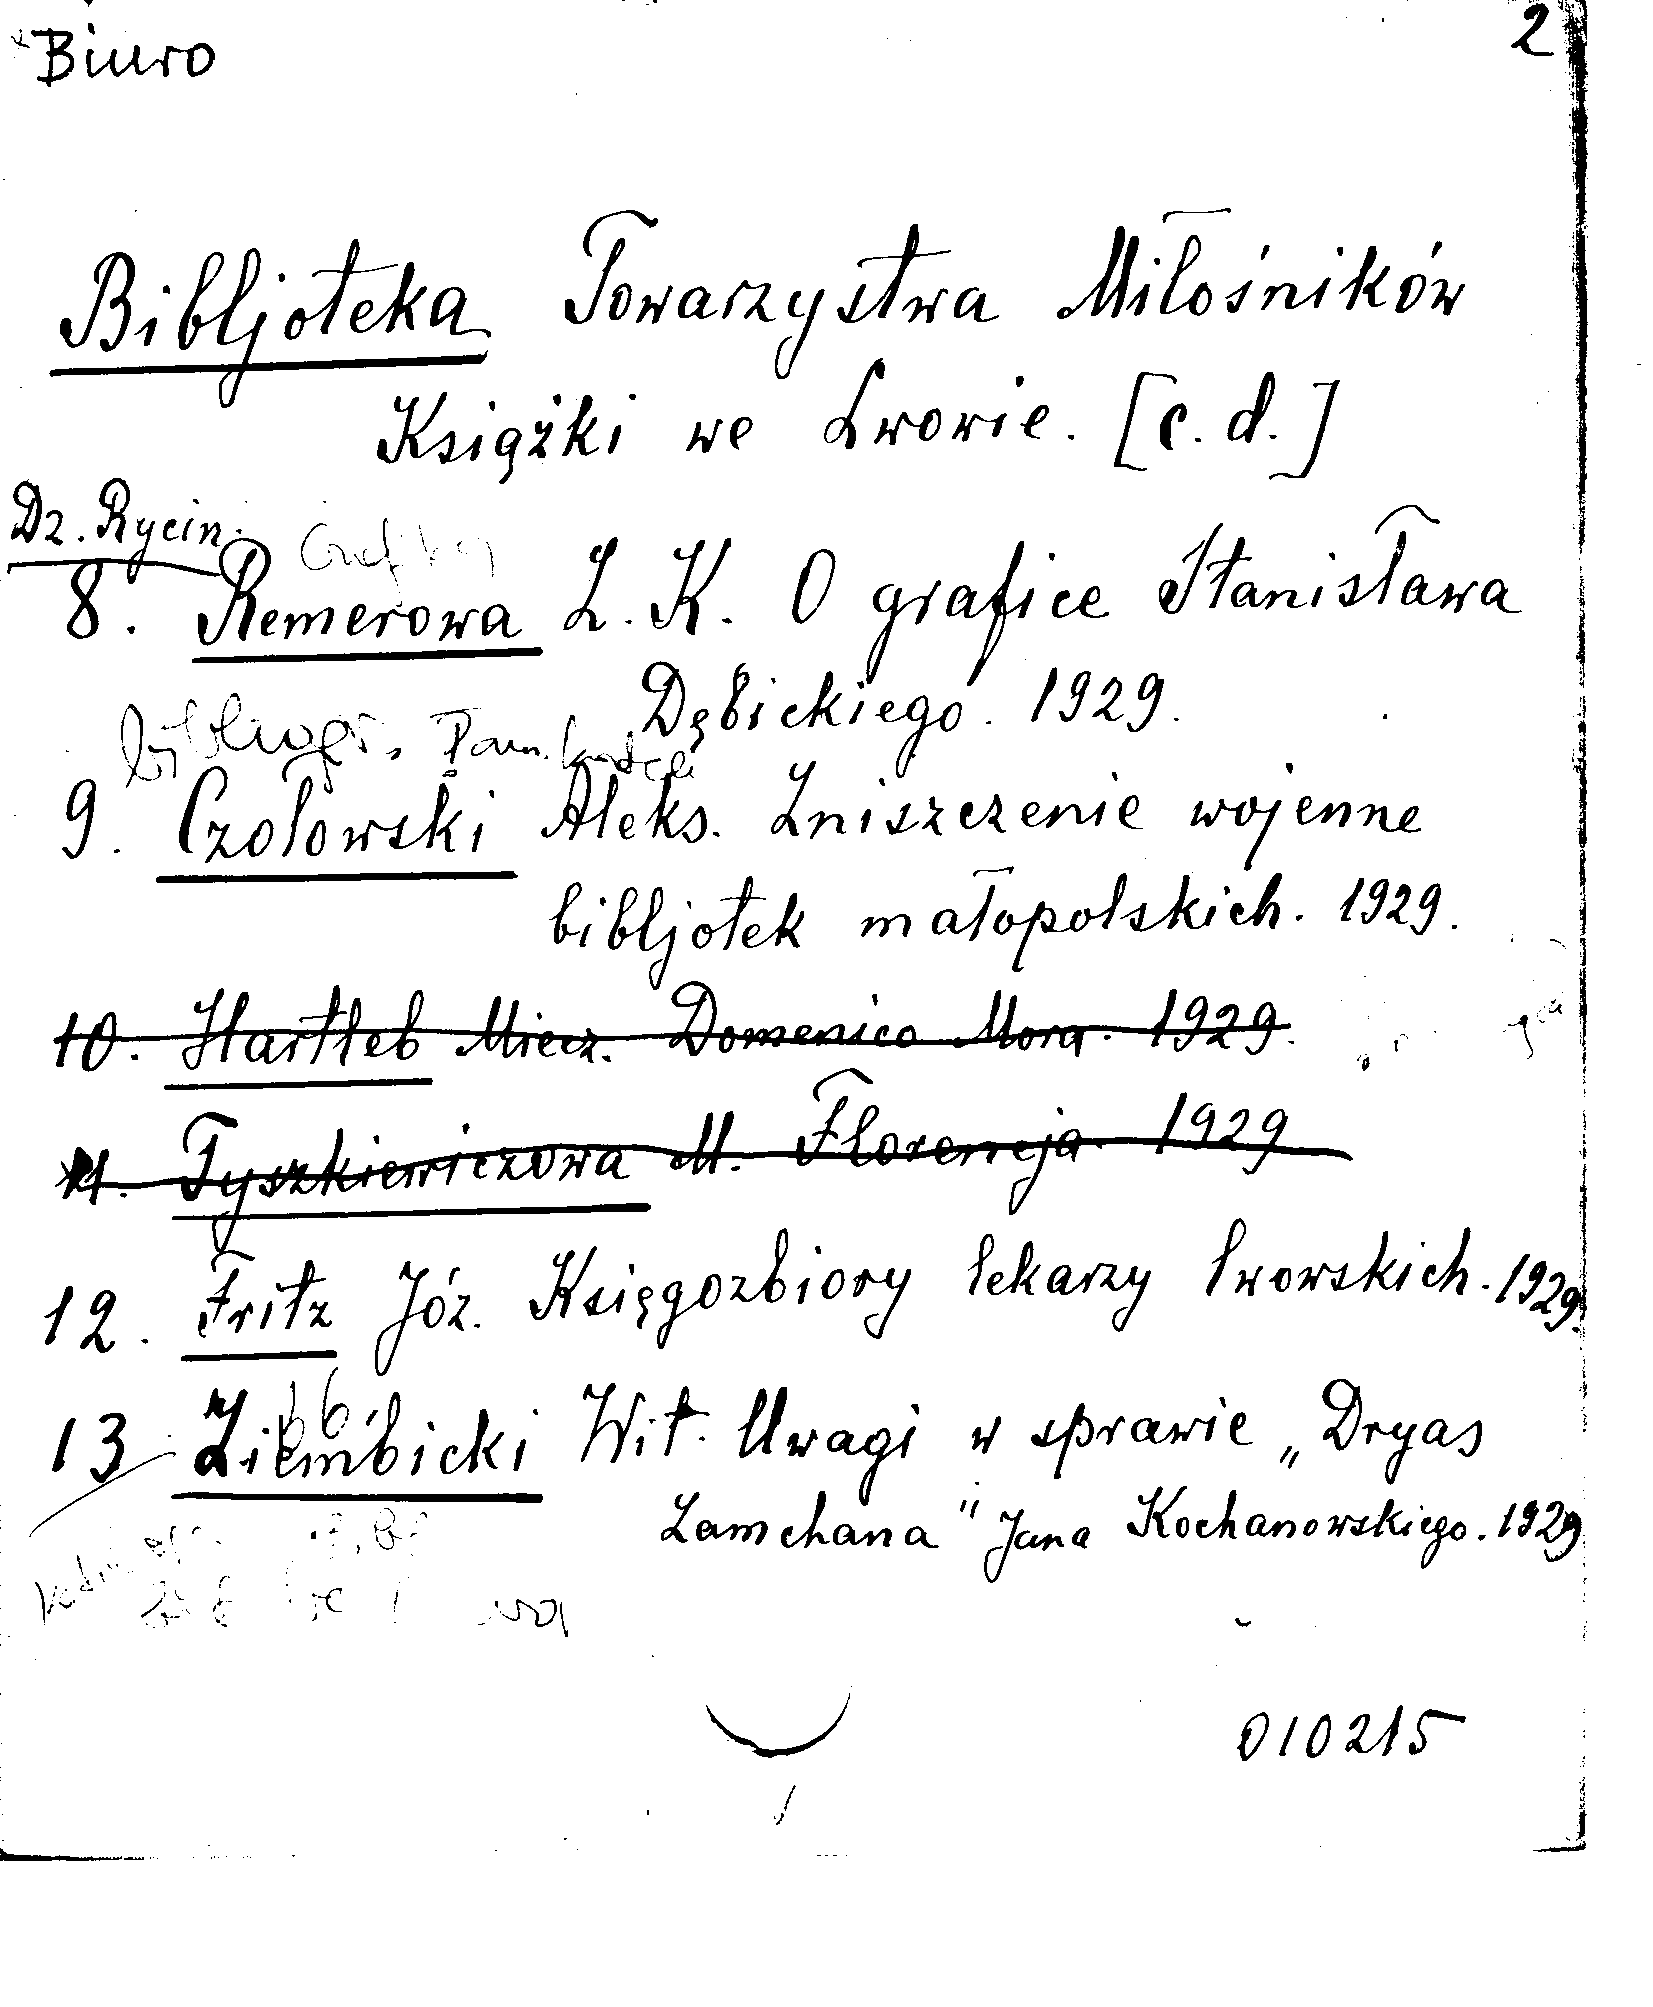 Biuro
2
Bibljoteka Towarzystwa Miłośników
Książki we Lwowie. [c. d.]
Dz. Rycin.
8. Remerowa Z. K. O grafice Stanisława
Dębickiego. 1929.
9. Czołowski Aleks. Zniszczenie wojenne
bibljotek małopolskich. 1929.
10. Hartleb Miecz. Domenico Mora. 1929.
11. Tyszkiewiczowa M. Florencja. 1929
12. Fritz Józ. Księgozbiory lekarzy lwowskich. 1929.
13 Ziembicki Wit. Uwagi w sprawie „Dryas
Zamchana" Jana Kochanowskiego. 1929
010215